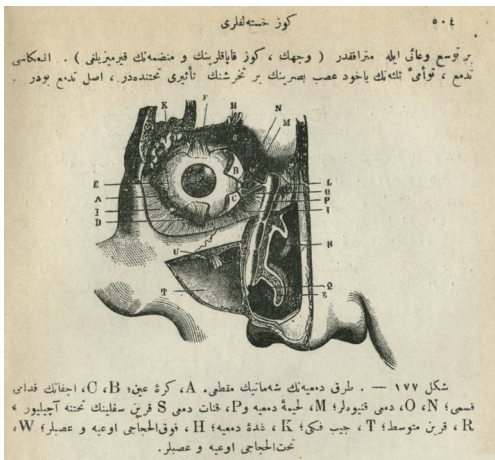 ٥٠٤
كوز خسته‌لقلرى
بر توسع وعائى ايله مترافقدر ( وجهك ، كوز قاپاقلرينك و منضمه‌نك قيرميزيلغى ) . انعكاسى
تدمع ، توأمىٔ ثلثه‌نك ياخود عصب بصرينك بر تخرشنك تأثيرى تحتنده‌در ، اصل تدمع بودر .
K
F
H
G
N
M
E
A
I
D
B
C
L
O
P
I
R
U
T
Q
S
شكل ١٧٧ — . طرق دمعيه‌نك شه‌ماتيك مقطعى. A، كرۀ عين؛ B، C، اجفانك قدامى
قسمى؛ N، O، دمعى قنيوه‌لر؛ M، لحيمۀ دمعيه و P، قنات دمعى S قرين سفلينك تحتنه آچيليور ؛
R ، قرين متوسط؛ T ، جيب فكى؛ K ، غدۀ دمعيه؛ H ، فوق‌الحجاجى اوعيه و عصبلر؛ W،
تحت‌الحجاجى اوعيه و عصبلر.